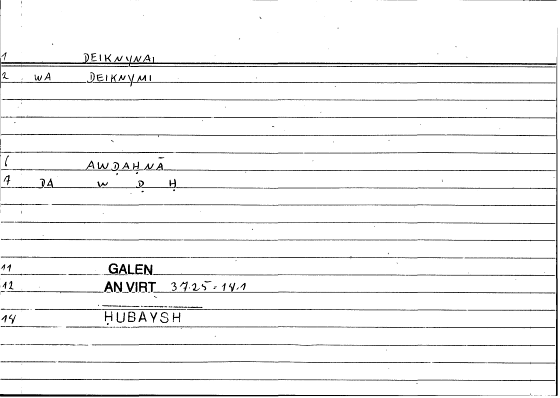 1 DEIKNYNAI
2 WA DEIKNYMI
6 AWḌAḤNĀ
7 DA W Ḍ Ḥ
11 GALEN
12 AN VIRT 37.25 = 14.1
14 ḤUBAYSH